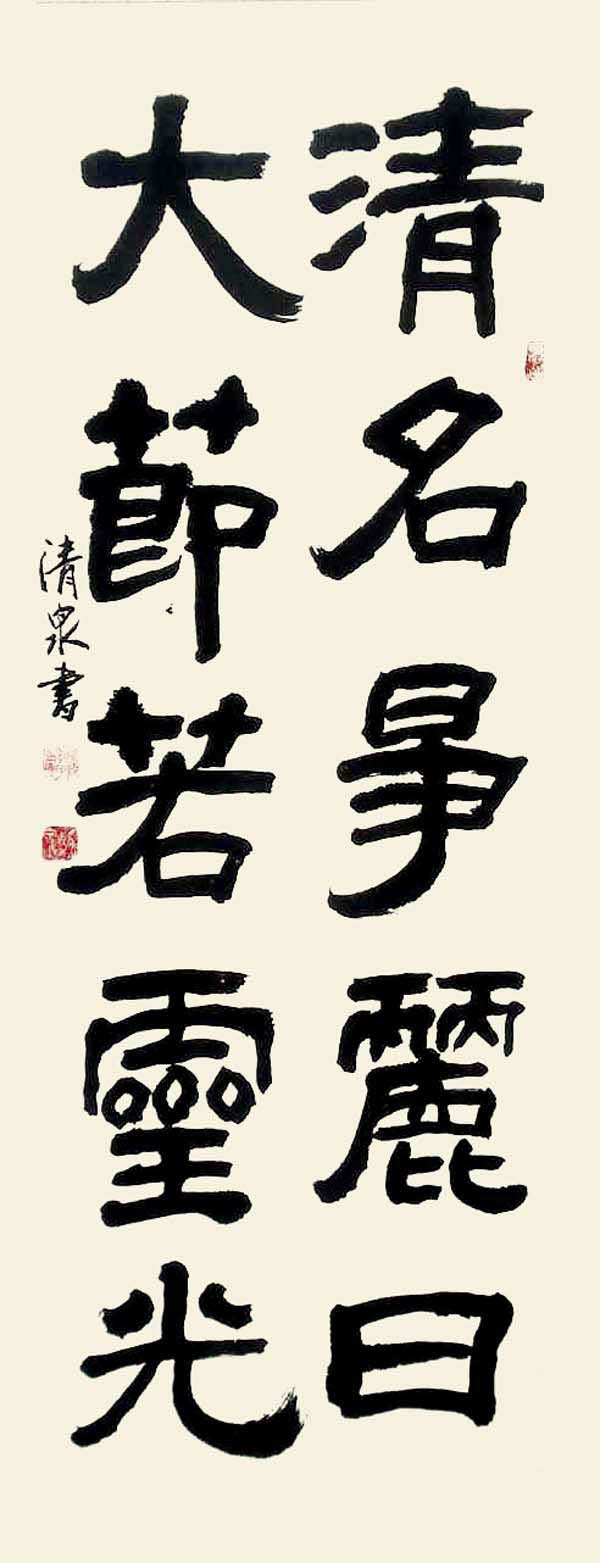 清名爭麗日
大節若靈光
清泉書